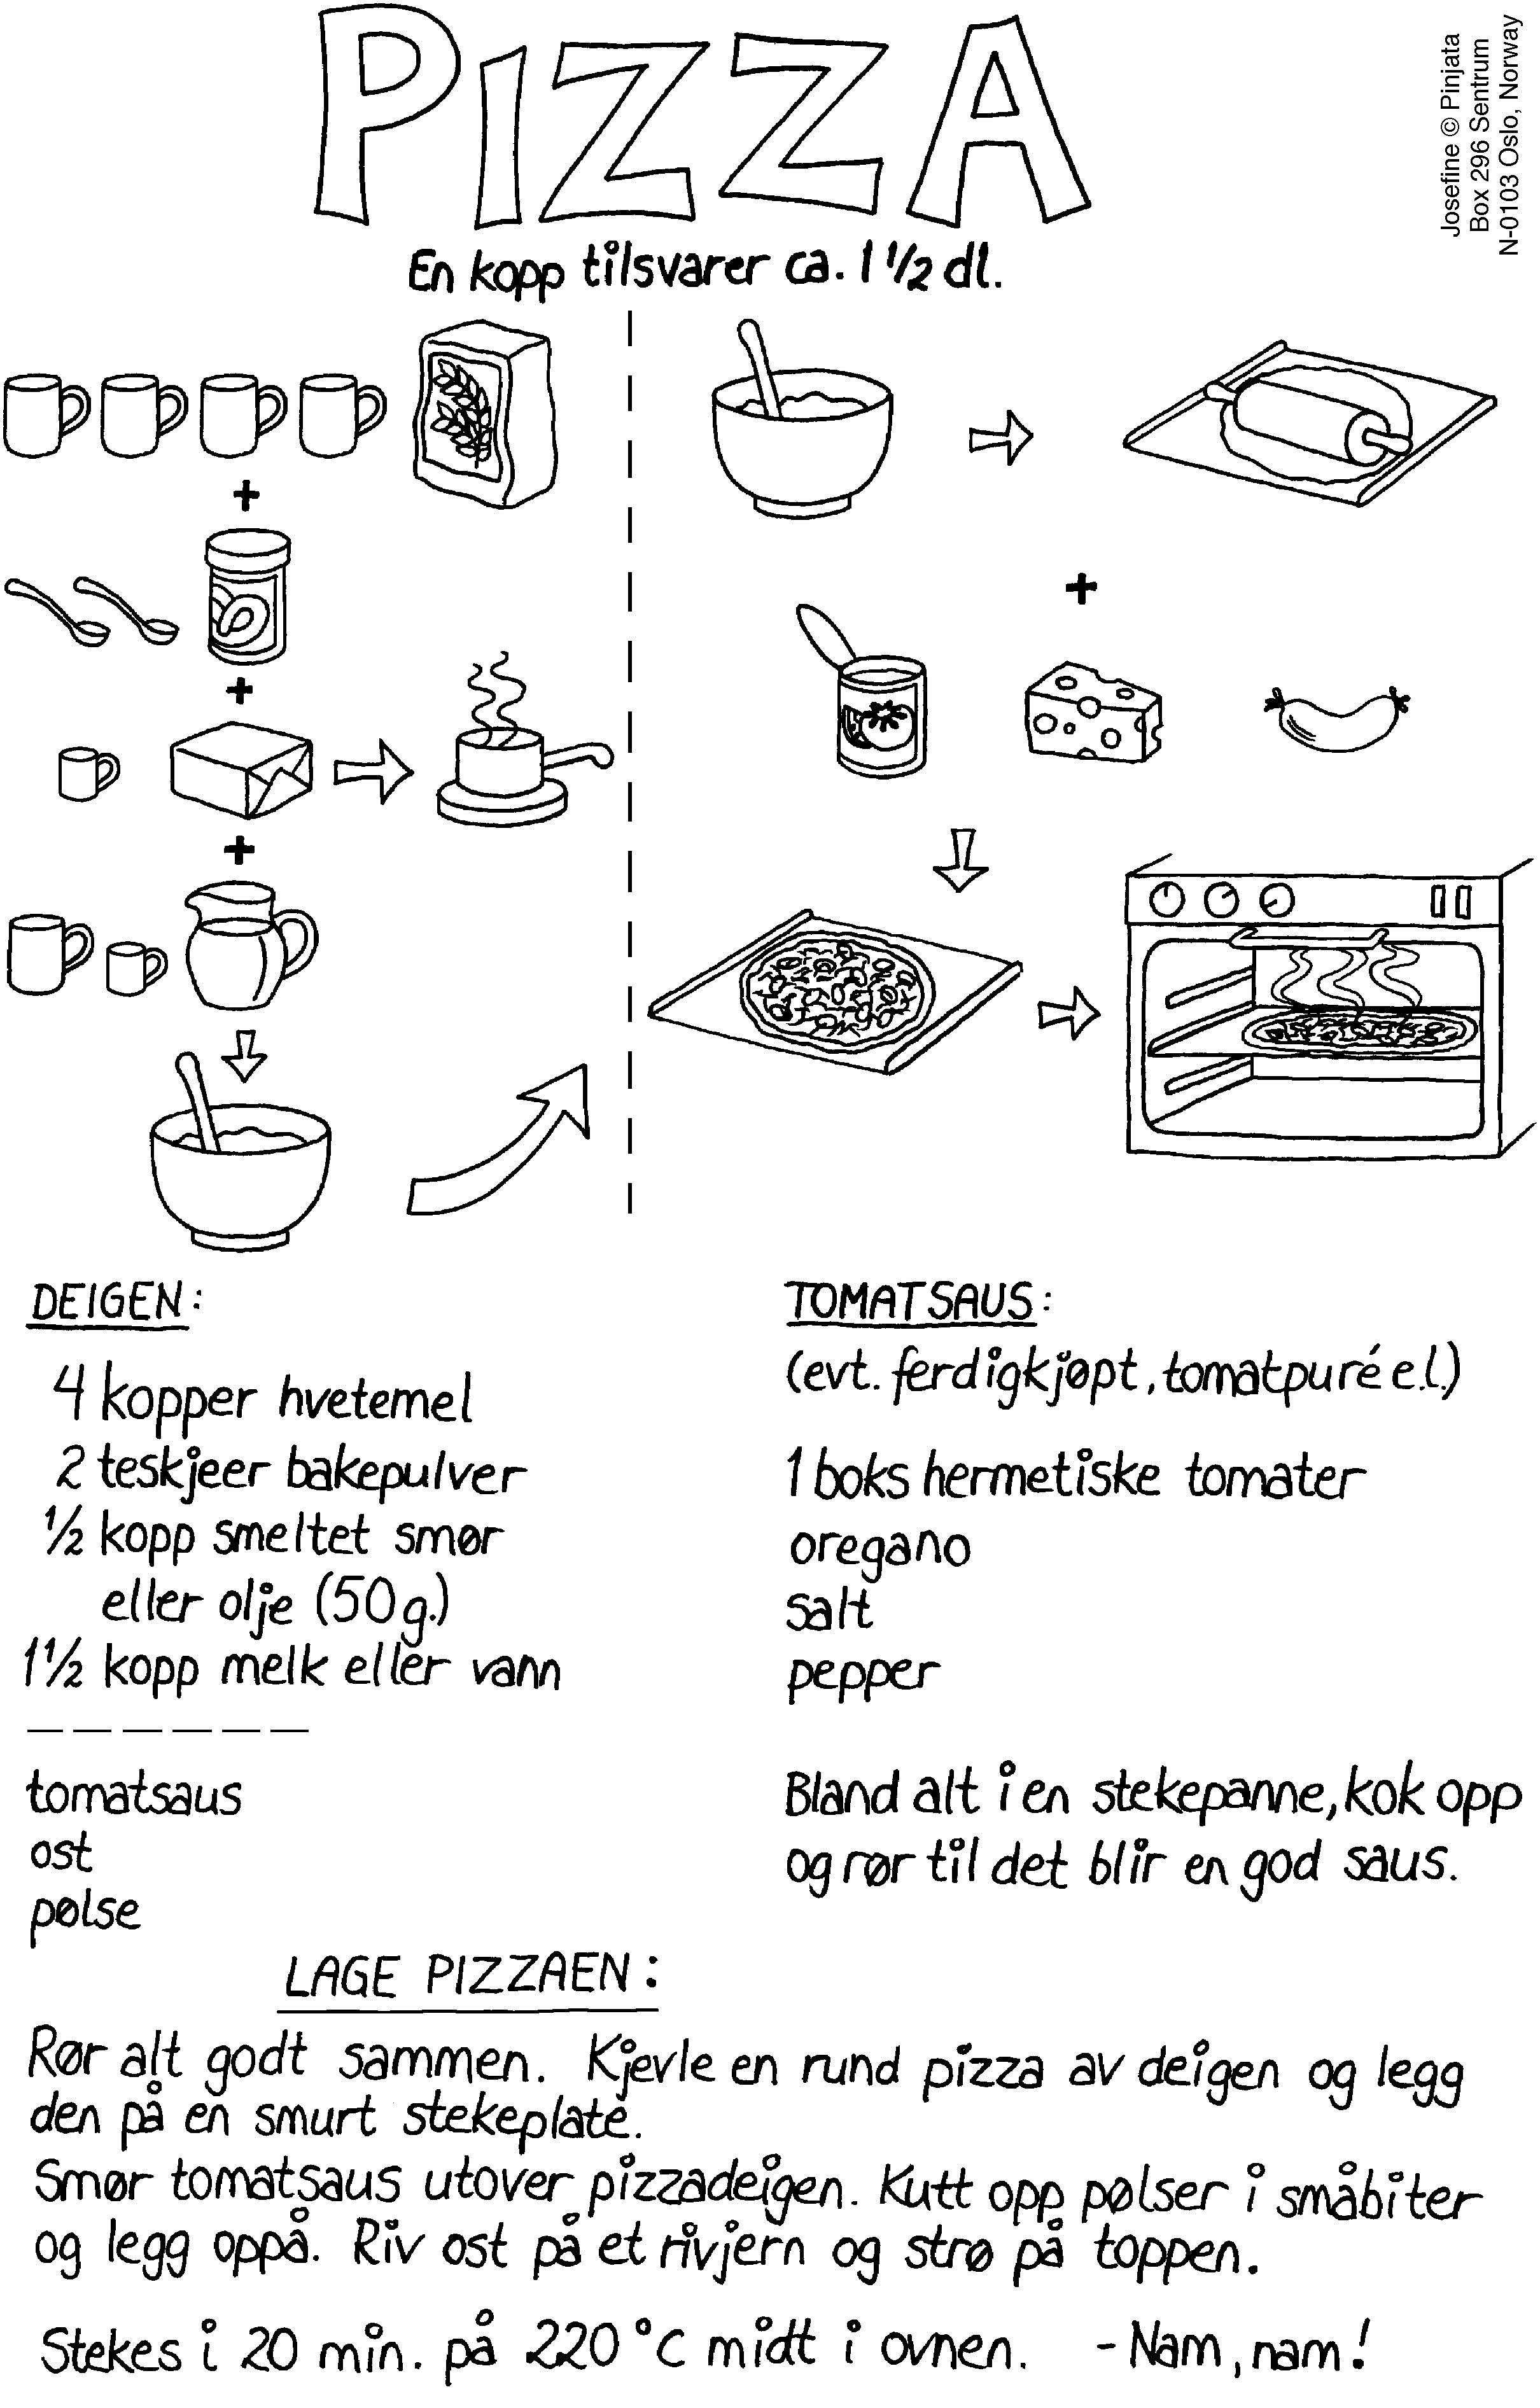 PIZZA
Josefine © Pinjata
Box 296 Sentrum
N-0103 Oslo, Norway
En kopp tilsvarer ca. 1 1/2 dl.
+
+
+
+
DEIGEN:
4 kopper hvetemel
2 teskjeer bakepulver
1/2 kopp smeltet smør
eller olje (50g.)
1 1/2 kopp melk eller vann
tomatsaus
ost
pølse
TOMATSAUS:
(evt. ferdigkjøpt, tomatpuré e.l.)
1 boks hermetiske tomater
oregano
salt
pepper
Bland alt i en stekepanne, kok opp
og rør til det blir en god saus.
LAGE PIZZAEN:
Rør alt godt sammen. Kjevle en rund pizza av deigen og legg
den på en smurt stekeplate.
Smør tomatsaus utover pizzadeigen. Kutt opp pølser i småbiter
og legg oppå. Riv ost på et rivjern og strø på toppen.
Stekes i 20 min. på 220 °C midt i ovnen. - Nam, nam!